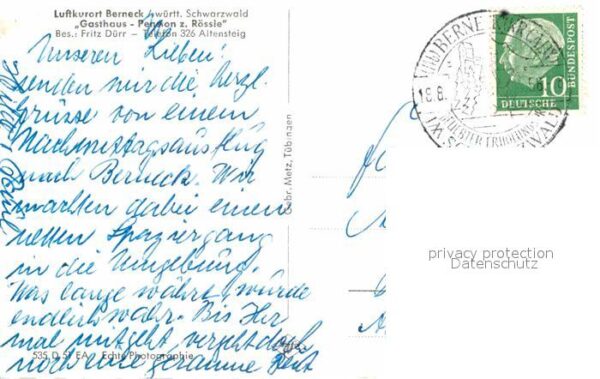 Luftkurort Berneck / württ. Schwarzwald
„Gasthaus - Pension z. Rössle"
Bes.: Fritz Dürr - Telefon 326 Altensteig
Unseren Lieben
senden nur die herzl.
Grüsse von einem
Nachmittagsausflug
nach Berneck. Wir
machten dabei einen
netten Spaziergang
in die Umgebung.
Was lange währt, wurde
endlich wahr. Bis Ihr
mal mitgeht vergeht doch
noch eine geraume Zeit
535 D 51 EA Echte Photographie
Gebr. Metz, Tübingen
BERNECK
18.8.
10
DEUTSCHE
BUNDESPOST
privacy protection
Datenschutz